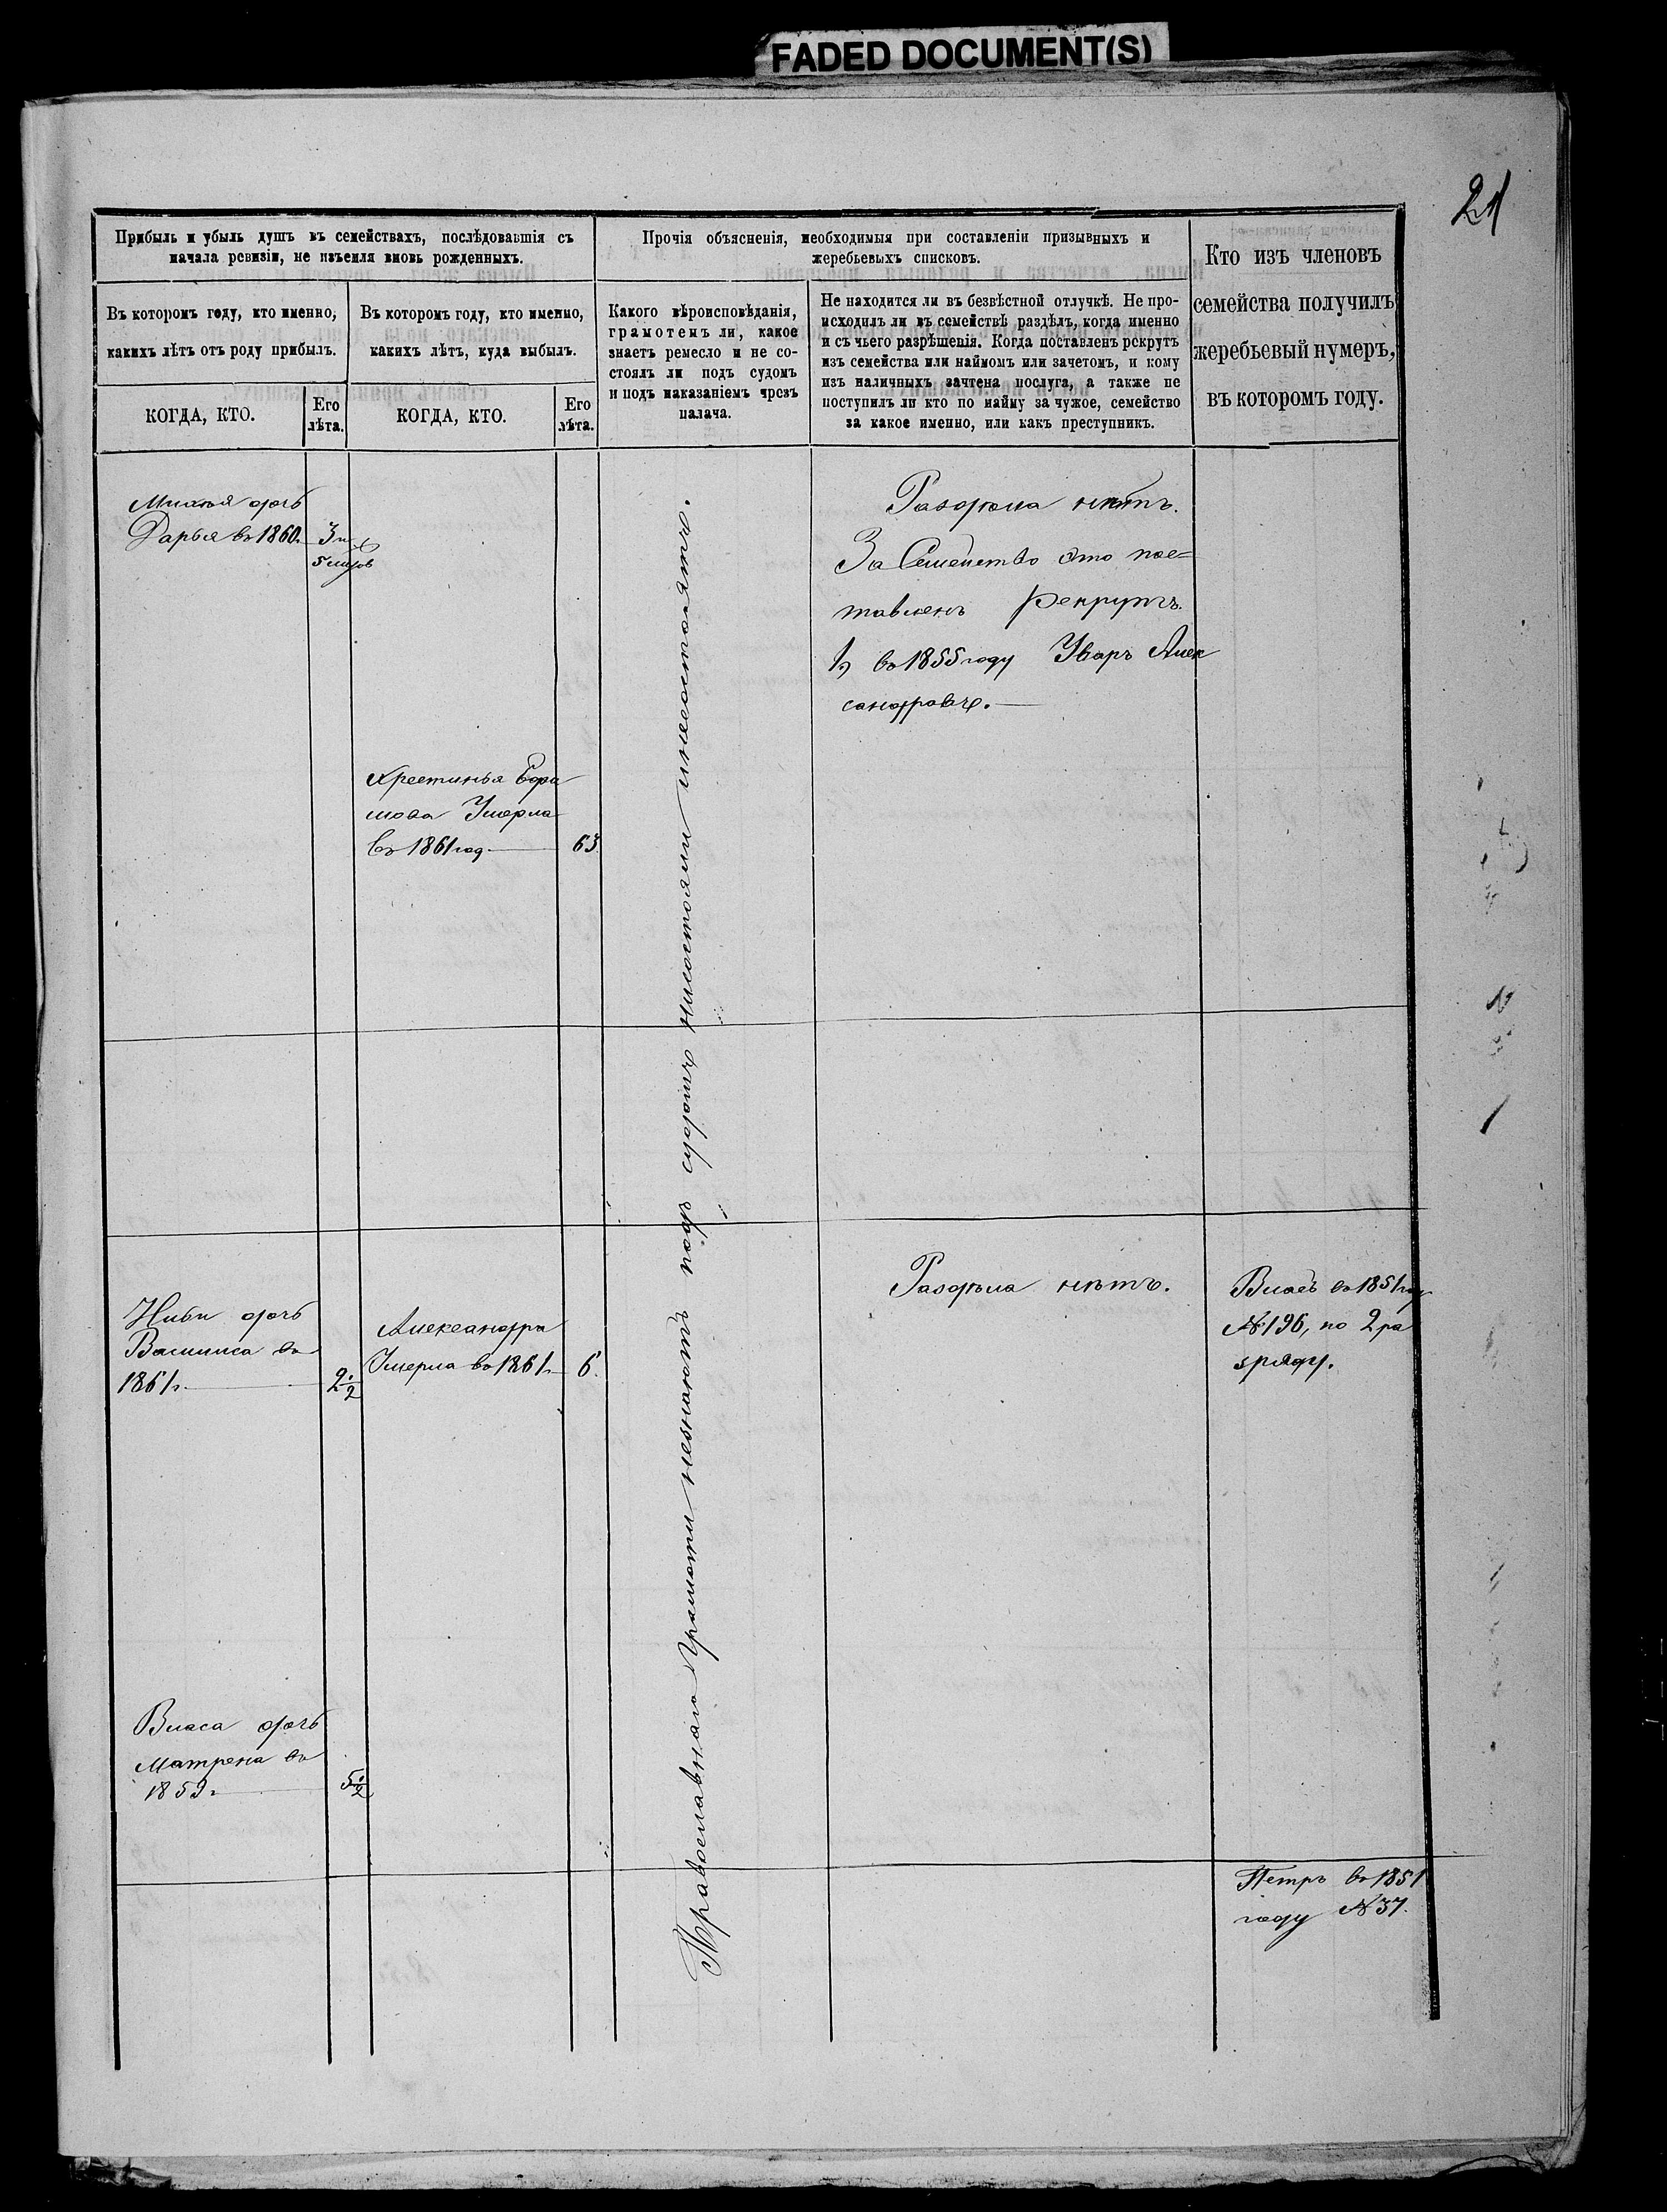 FADED DOCUMENT(S)
21
Прибыль и убыль душъ въ семействахъ, послѣдовавшія съ
начала ревизіи, не изъемля вновь рожденныхъ.
Прочія объясненія, необходимыя при составленіи призывныхъ и
жеребьевыхъ списковъ.
Кто изъ членовъ
семейства получилъ
жеребьевый нумеръ,
въ которомъ году.
Въ которомъ году, кто именно,
какихъ лѣтъ отъ роду прибылъ.
Въ которомъ году, кто именно,
какихъ лѣтъ, куда выбылъ.
Какого вѣроисповѣданія,
грамотенъ ли, какое
знаетъ ремесло и не со-
стоялъ ли подъ судомъ
и подъ наказаніемъ чрезъ
палача.
Не находится ли въ безвѣстной отлучкѣ. Не про-
исходилъ ли въ семействѣ раздѣлъ, когда именно
и съ чьего разрѣшенія. Когда поставленъ рекрутъ
изъ семейства или наймомъ или зачетомъ, и кому
изъ наличныхъ зачтена послуга, а также не
поступилъ ли кто по найму за чужое, семейство
за какое именно, или какъ преступникъ.
КОГДА, КТО.
Его
лѣта.
КОГДА, КТО.
Его
лѣта.
дочь
Дарья въ 1860г. 3
Раздѣла нѣтъ.
За Семейство это пос=
тавленъ Рекрутъ.
1, въ 1855 году Уваръ Алек
сандровъ.
Хрестинья
мова Умерла
въ 1861 год. 63.
Православнаго Грамоты незнаютъ подъ судомъ нисостояли инесостоятъ.
Раздѣла нѣтъ.
Власъ въ 1851 году
№ 196, по 2 ра
зряду.
дочь
Василиса въ
1861г. 2 1/2
Александра
Умерла въ 1861г. 6.
Власа дочь
Матрена въ
1859г. 5 1/2
Петръ въ 1851
году № 37.